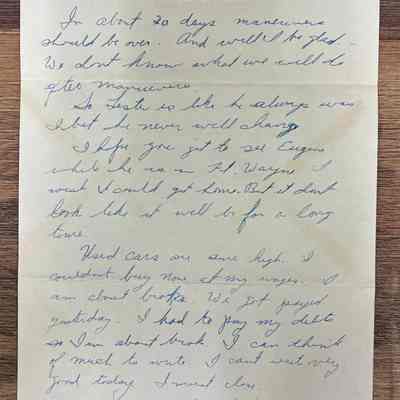 In about 20 days maneuvers
should be over. And will I be glad -
We dont know what we will do
after maneuvers
So Lester is like he always was
I bet he never will change
I hope you get to see Eugene
while he is in Ft. Wayne I
wish I could get home. But it dont
look like it will be for a long
time.
Used cars are sure high. I
couldnt buy none at my wages. I
am about broke. We got payed
yesterday. I had to pay my debts
so I'm about brok. I can think
of much to write. I cant writ very
good today. I must close.